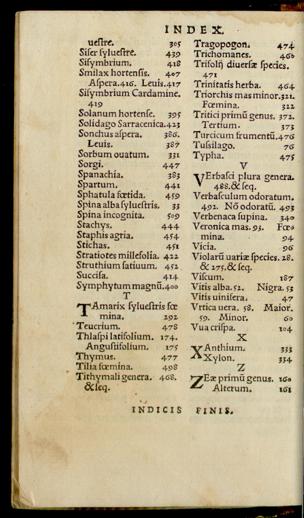 INDEX.
uestre. 305
Siser syluestre. 439
Sisymbrium. 418
Smilax hortensis. 407
Aspera.416. Leuis.417
Sisymbrium Cardamine.
419
Solanum hortense. 395
Solidago Sarracenica.423
Sonchus aspera. 386.
Leuis. 387
Sorbum ouatum. 331
Sorgi. 447
Spanachia. 383
Spartum. 441
Sphatula fœtida. 459
Spina alba syluestris. 33
Spina incognita. 509
Stachys. 444
Staphis agria. 454
Stichas. 451
Stratiotes millefolia. 422
Struthium satiuum. 452
Succisa. 424
Symphytum magnū.400
T
TAmarix syluestris fœ
mina. 292
Teucrium. 478
Thlaspi latifolium. 174.
Angustifolium. 175
Thymus. 477
Tilia fœmina. 498
Tithymali genera. 468.
& seq.
Tragopogon. 474
Trichomanes. 460
Trifolij diuersæ species.
471
Trinitatis herba. 464
Triorchis mas minor.321.
Fœmina. 322
Tritici primū genus. 372.
Tertium. 373
Turcicum frumentū.476
Tussilago. 76
Typha. 475
V
VErbasci plura genera.
488.& seq.
Verbasculum odoratum.
492. Nō odoratū. 493
Verbenaca supina. 340
Veronica mas. 93. Fœ
mina. 94
Vicia. 96
Violarū uariæ species. 28.
& 275.& seq.
Viscum. 187
Vitis alba.52. Nigra. 53
Vitis uinifera. 47
Vrtica uera. 58. Maior.
59. Minor. 60
Vua crispa. 104
X
XAnthium. 333
Xylon. 334
Z
ZEæ primū genus. 160
Alterum. 161
INDICIS FINIS.